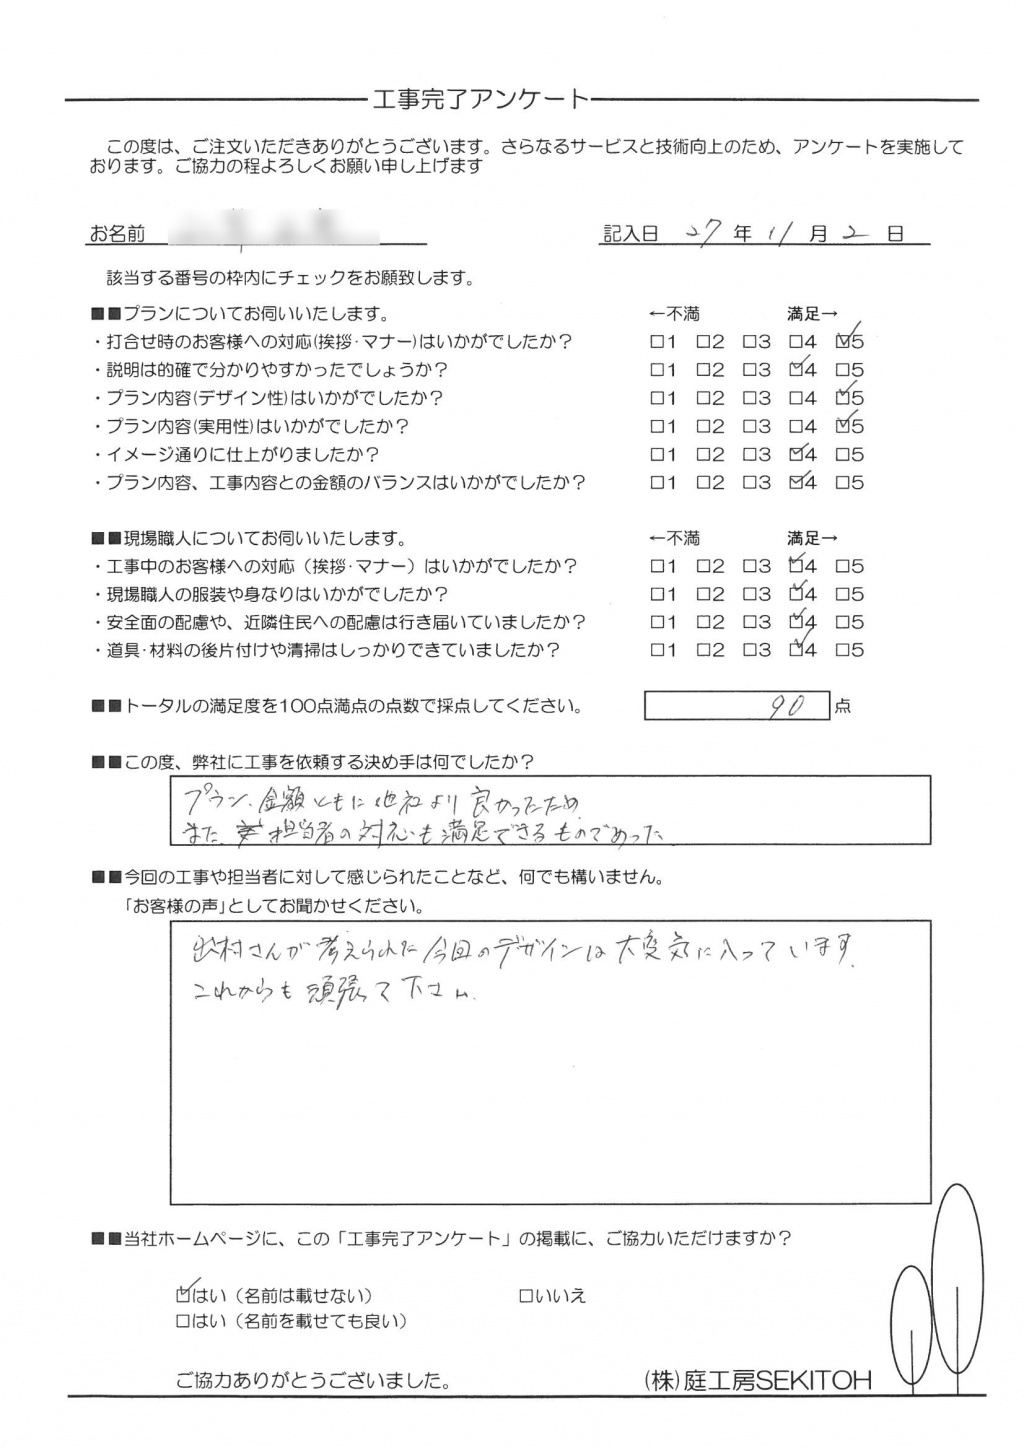 工事完了アンケート
この度は、ご注文いただきありがとうございます。さらなるサービスと技術向上のため、アンケートを実施して
おります。ご協力の程よろしくお願い申し上げます
お名前 記入日 27 年 11 月 2 日
該当する番号の枠内にチェックをお願致します。
■■プランについてお伺いいたします。 ←不満 満足→
・打合せ時のお客様への対応(挨拶・マナー)はいかがでしたか? □1 □2 □3 □4 ☑5
・説明は的確で分かりやすかったでしょうか? □1 □2 □3 ☑4 □5
・プラン内容(デザイン性)はいかがでしたか? □1 □2 □3 □4 ☑5
・プラン内容(実用性)はいかがでしたか? □1 □2 □3 □4 ☑5
・イメージ通りに仕上がりましたか? □1 □2 □3 ☑4 □5
・プラン内容、工事内容との金額のバランスはいかがでしたか? □1 □2 □3 ☑4 □5
■■現場職人についてお伺いいたします。 ←不満 満足→
・工事中のお客様への対応（挨拶・マナー）はいかがでしたか? □1 □2 □3 ☑4 □5
・現場職人の服装や身なりはいかがでしたか? □1 □2 □3 ☑4 □5
・安全面の配慮や、近隣住民への配慮は行き届いていましたか? □1 □2 □3 ☑4 □5
・道具・材料の後片付けや清掃はしっかりできていましたか? □1 □2 □3 ☑4 □5
■■トータルの満足度を100点満点の点数で採点してください。 90 点
■■この度、弊社に工事を依頼する決め手は何でしたか?
プラン、金額ともに他社より良かったため
また、担当者の対応も満足できるものであった
■■今回の工事や担当者に対して感じられたことなど、何でも構いません。
「お客様の声」としてお聞かせください。
出村さんが考えられた今回のデザインは大変気に入っています。
これからも頑張って下さい。
■■当社ホームページに、この「工事完了アンケート」の掲載に、ご協力いただけますか?
☑はい（名前は載せない） □いいえ
□はい（名前を載せても良い）
ご協力ありがとうございました。 (株)庭工房SEKITOH